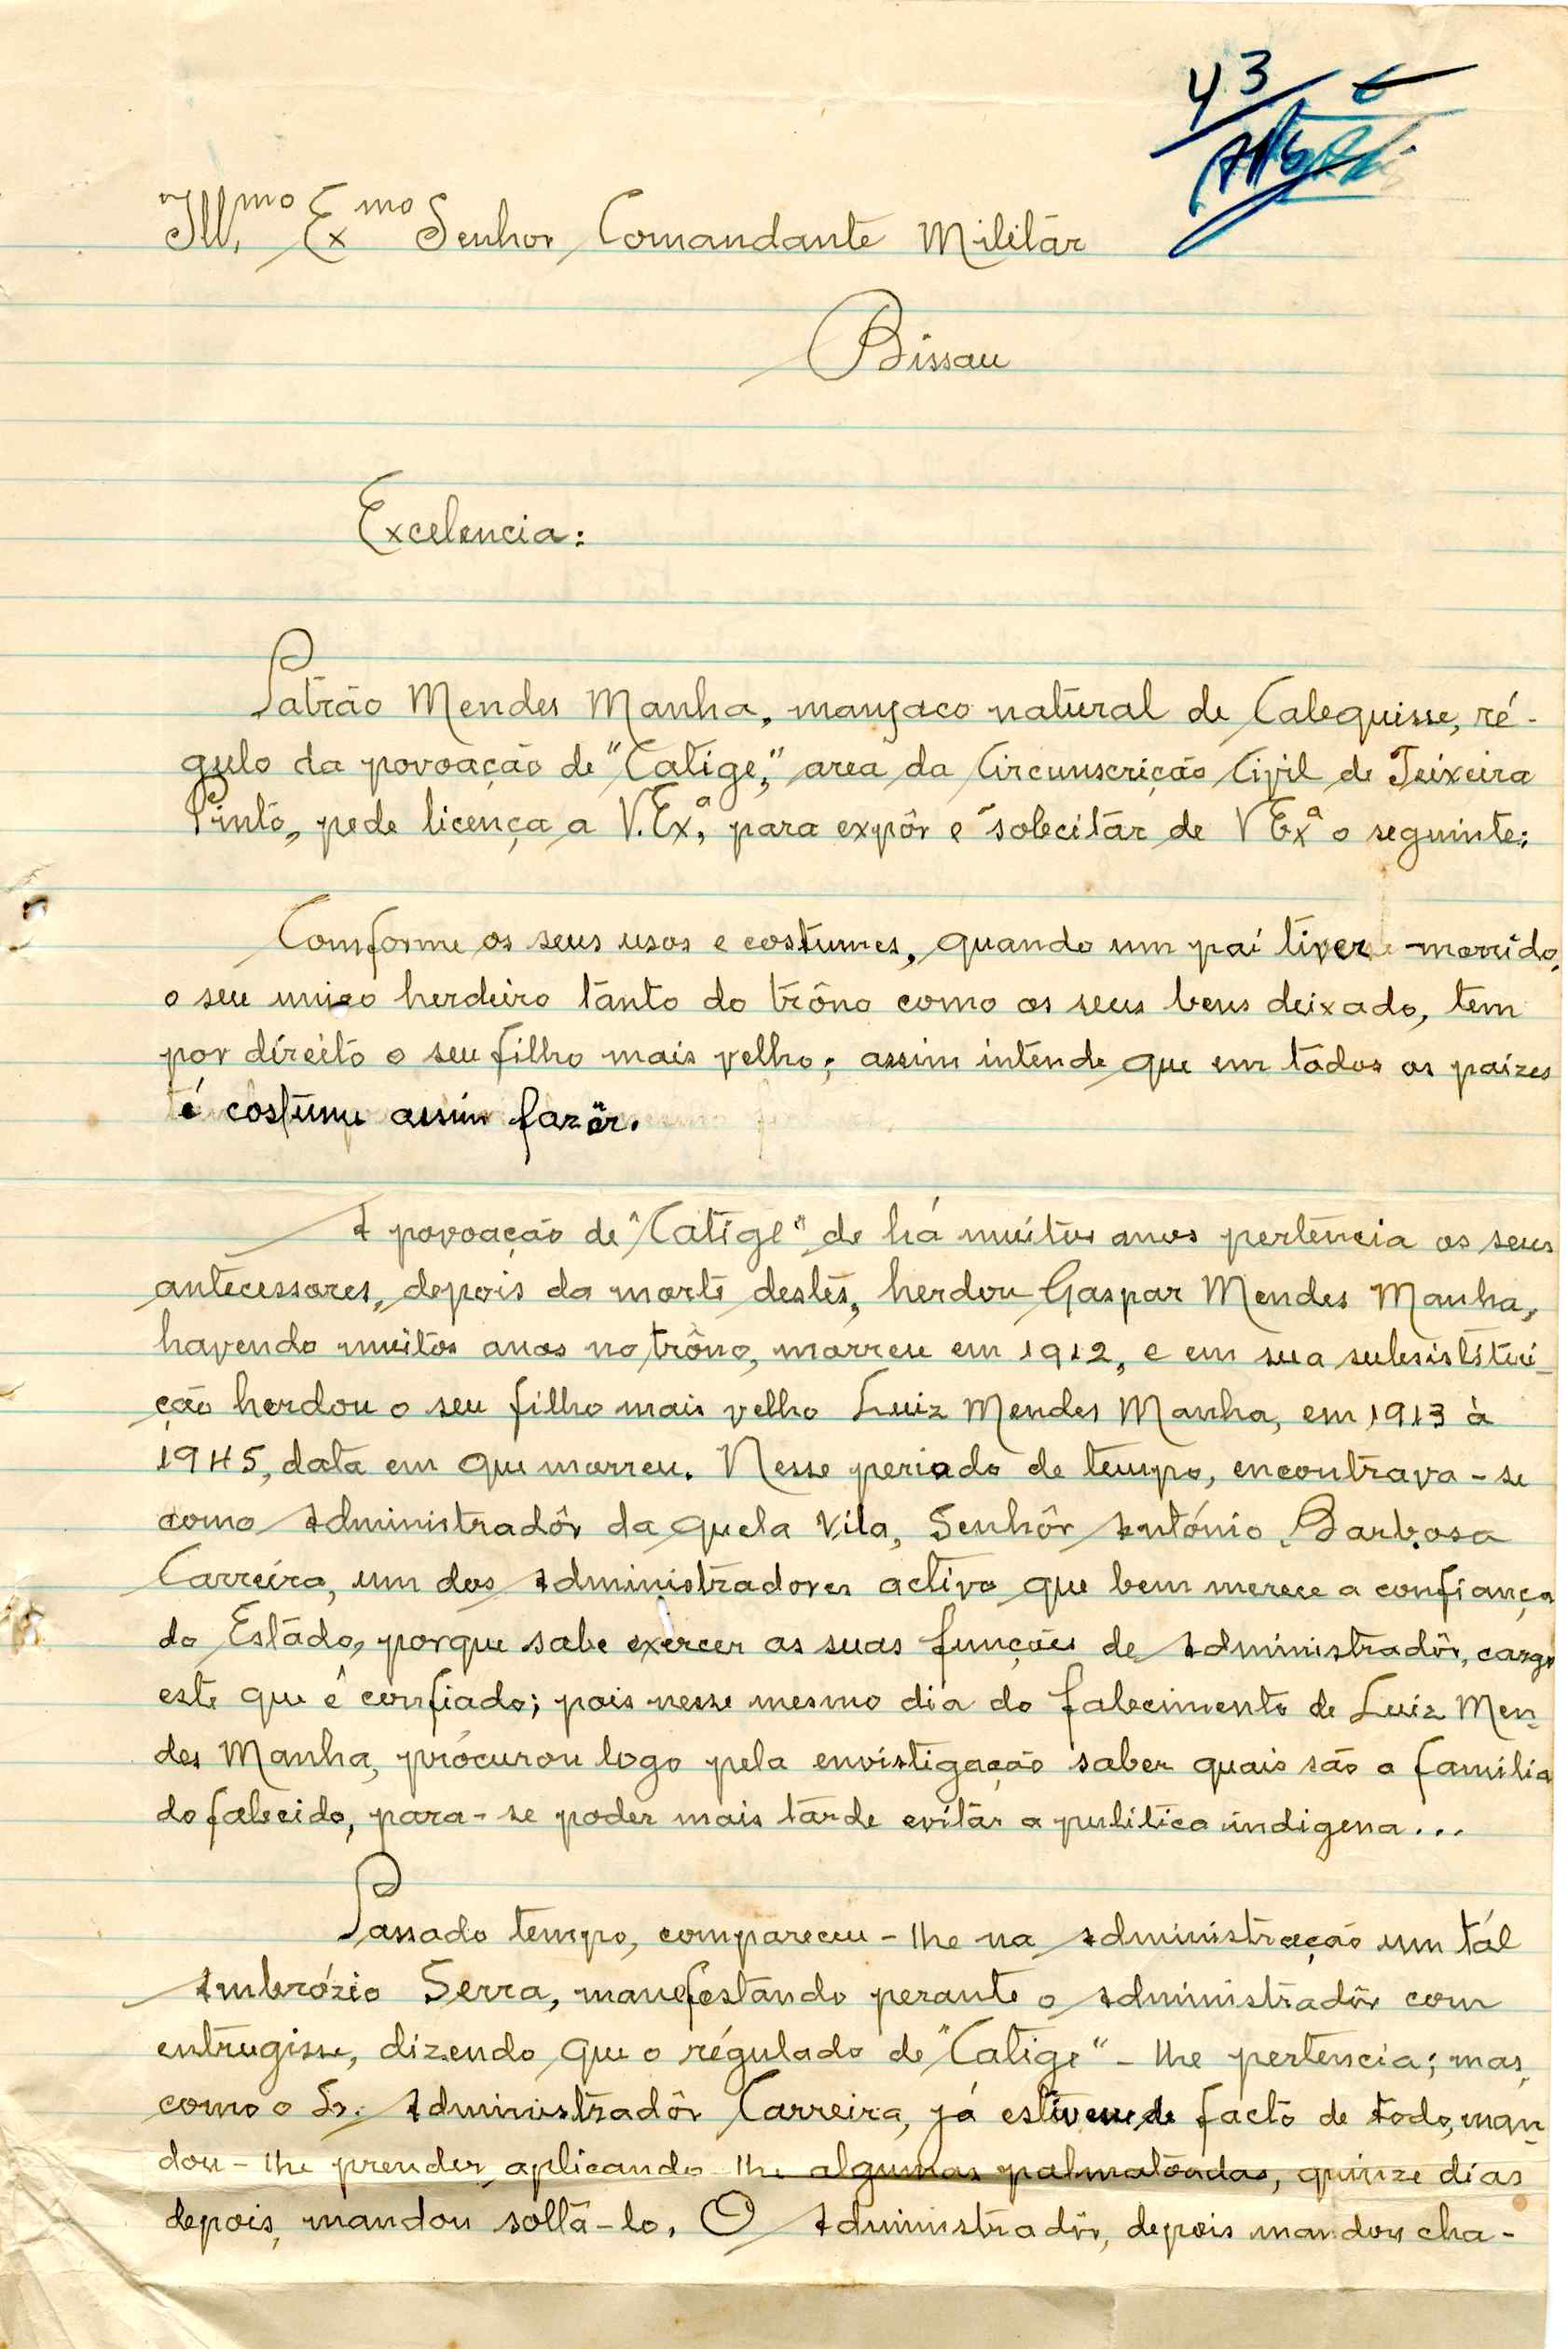 43
Ill.mo Ex mo Senhor Comandante Militár
Bissau
Excelencia:
Patrão Mendes Manha, manjaco natural de Calequisse, ré-
gulo da povoação de "Catige," area da Circunscrição Civil de Teixeira
Pinto, pede licença a V. Ex.ª, para expôr e solecitár de V Exª o seguinte:
Comforme os seus usos e costumes, quando um pai tiver morrido,
o seu unico herdeiro tanto do trôno como os seus bens deixado, tem
por direito o seu filho mais velho; assim intende que em todos os paizes
é costume assim fazêr.
A povoação de "Catige" de há muitos anos pertencia os seus
antecessores, depois da morte destes, herdou Gaspar Mendes Manha,
havendo muitos anos no trôno, morreu em 1912, e em sua subsistitui-
ção herdou o seu filho mais velho Luiz Mendes Manha, em 1913 à
1945, data em que morreu. Nesse periodo de tempo, encontrava-se
como Administradôr da quela Vila, Senhôr António Barbosa
Carreira, um dos Administradores activo que bem merece a confiança
do Estádo, porque sabe exercer as suas funções de Administradôr, cargo
este que ê confiado; pois nesse mesmo dia do falecimento de Luiz Men-
des Manha, prócurou logo pela envistigação saber quais são a familia
do falecido, para-se poder mais tarde evitár a pulitica indigena...
Passado tempo, compareceu-lhe na Administração um tál
Ambrózio Serra, manefestando perante o Administradôr com
entrugisse, dizendo que o régulado de "Catige" - lhe pertencia; mas,
como o Sr. Administradôr Carreira, já estivesse de facto de todo, man-
dou-lhe prender aplicando lhe algumas palmatoadas, quinze dias
depois, mandou soltá-lo. O Administradôr, depois mandou cha-